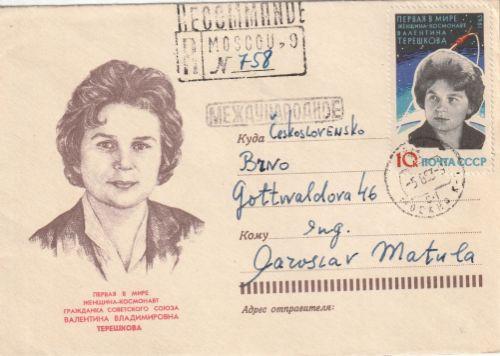 RECOMMANDE
R MOSCOU-9
N 758
МЕЖДУНАРОДНОЕ
ПЕРВАЯ В МИРЕ
ЖЕНЩИНА-КОСМОНАВТ
ВАЛЕНТИНА
ТЕРЕШКОВА
1963
10 К ПОЧТА СССР
МОСКВА
Куда Československo
Brno
Gottwaldova 46
Кому ing.
Jaroslav Matula
Адрес отправителя:
ПЕРВАЯ В МИРЕ
ЖЕНЩИНА-КОСМОНАВТ
ГРАЖДАНКА СОВЕТСКОГО СОЮЗА
ВАЛЕНТИНА ВЛАДИМИРОВНА
ТЕРЕШКОВА